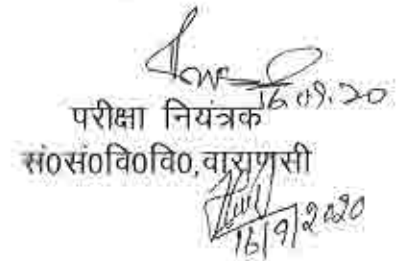 16.09.20
परीक्षा नियंत्रक
सं0सं0वि0वि0,वाराणसी
16/9/2020